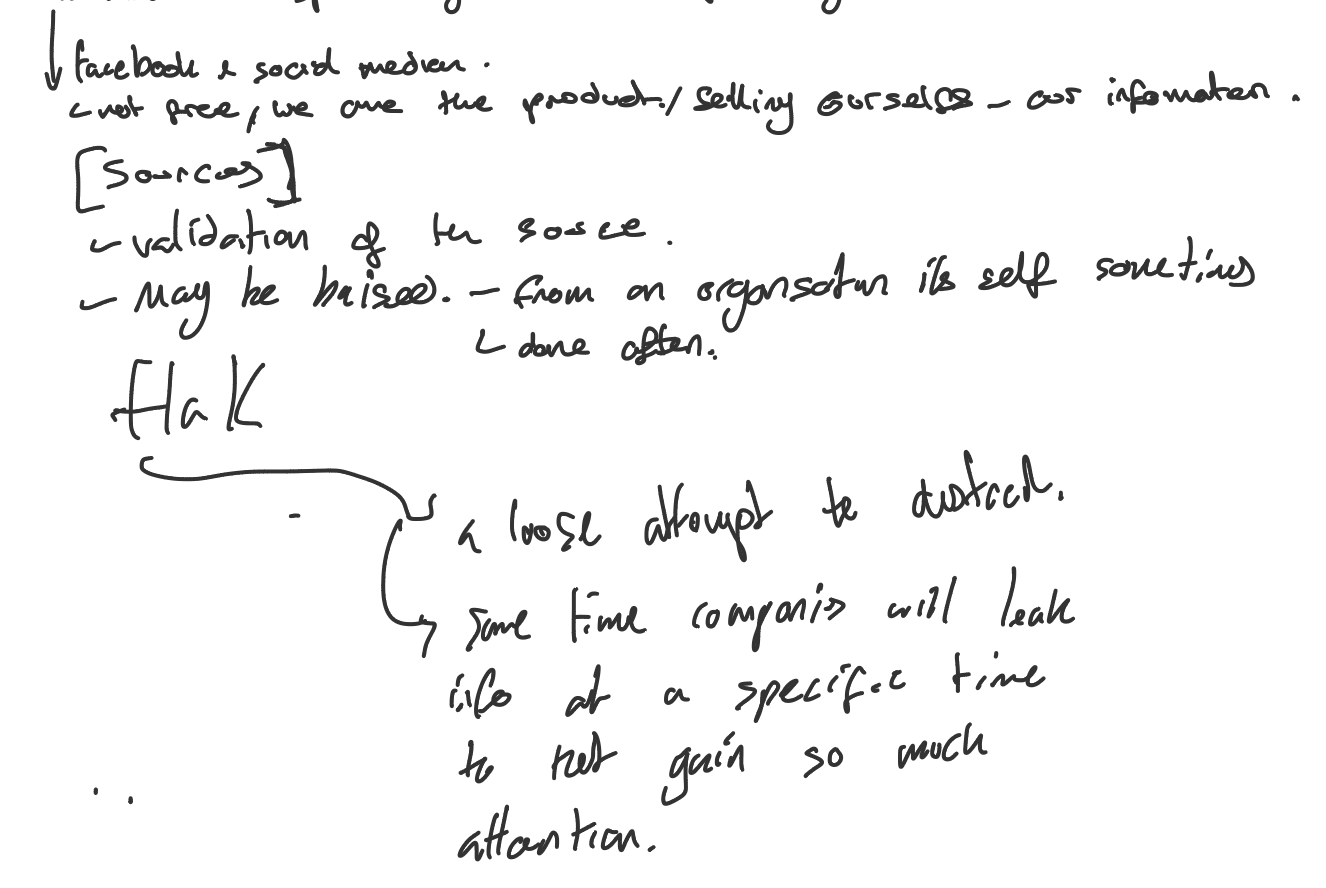 facebook & social median.
not free, we are the product / selling ourselfs - our infomaten.
[Sources]
- validation of the souce.
- May be baised. - from an organsatun its self sometims
done often.
Flak
a loose attempt to distract.
some time companis will leak
info at a specific time
to not gain so much
attention.